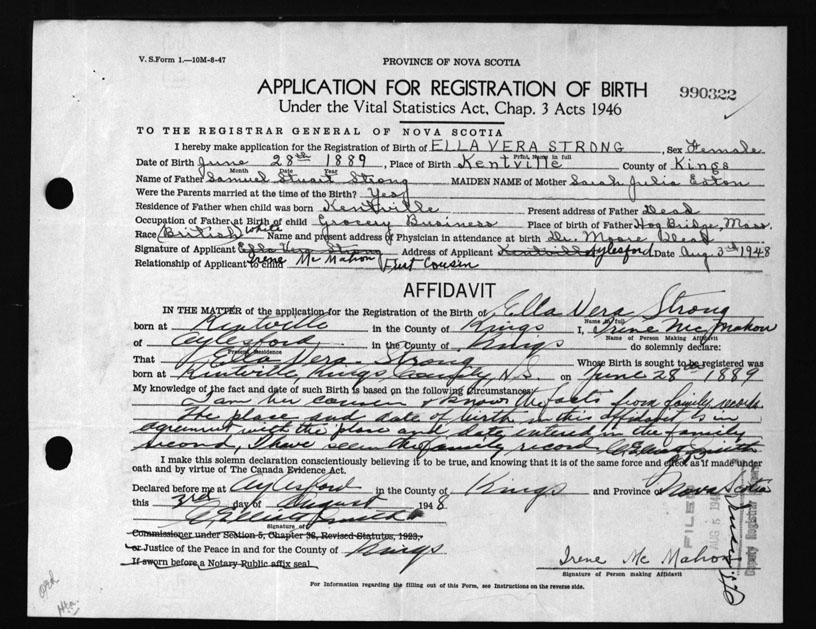 V. S. Form 1.—10M-8-47
PROVINCE OF NOVA SCOTIA
APPLICATION FOR REGISTRATION OF BIRTH
990322
Under the Vital Statistics Act, Chap. 3 Acts 1946
TO THE REGISTRAR GENERAL OF NOVA SCOTIA
I hereby make application for the Registration of Birth of ELLA VERA STRONG, Sex Female
Print Name in full
Date of Birth June 28th 1889, Place of Birth Kentville County of Kings
Month Date Year
Name of Father Samuel Stuart Strong MAIDEN NAME of Mother Sarah Julia Eaton
Were the Parents married at the time of the Birth? Yes
Residence of Father when child was born Kentville Present address of Father Dead
Occupation of Father at Birth of child Grocery Business Place of birth of Father Hog Bridge, Mass.
Race British White Name and present address of Physician in attendance at birth Dr. Moore Dead
Signature of Applicant Ella Vera Strong Address of Applicant Kentville Aylesford Date Aug 3rd 1948
Relationship of Applicant to child Irene McMahon First Cousin
AFFIDAVIT
IN THE MATTER of the application for the Registration of the Birth of Ella Vera Strong
Name in full
born at Kentville in the County of Kings I, Irene McMahon
Name of Person Making Affidavit
of Aylesford in the County of Kings do solemnly declare:
Present Residence
That Ella Vera Strong Whose Birth is sought to be registered was
born at Kentville, Kings County N.S. on June 28th 1889
My knowledge of the fact and date of such Birth is based on the following Circumstances:
I am her cousin & know the facts from family records
The place and date of birth in this affidavit is in
agreement with the place and date entered in the family
record, I have seen the family record C. Elliott Smith
I make this solemn declaration conscientiously believing it to be true, and knowing that it is of the same force and effect as if made under
oath and by virtue of The Canada Evidence Act.
Declared before me at Aylesford in the County of Kings and Province of Nova Scotia
this 3rd day of August 1948
C. Elliott Smith
Signature of
Commissioner under Section 5, Chapter 36, Revised Statutes, 1923,
or Justice of the Peace in and for the County of Kings
If sworn before a Notary Public affix seal
Irene McMahon
Signature of Person making Affidavit
FILED
AUG 5 194
Deputy Registrar
For Information regarding the filling out of this Form, see Instructions on the reverse side.